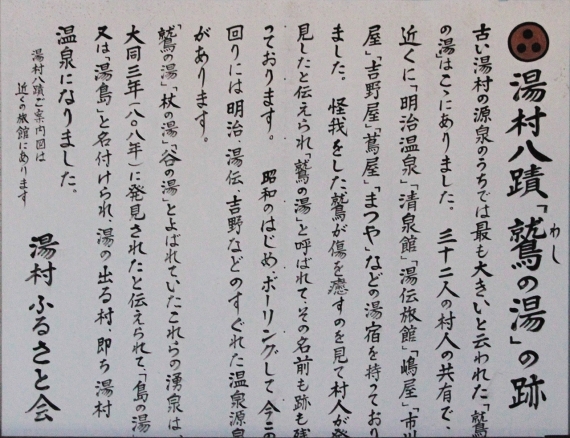 湯村八蹟「鷲の湯」の跡
わし
古い湯村の源泉のうちでは最も大きいと云われた、「鷲
の湯」はこゝにありました。 三十二人の村人の共有で、
近くに「明治温泉」「清泉館」「湯伝旅館」「嶋屋」「市川
屋」「吉野屋」「蔦屋」「まつや」などの湯宿を持っており
ました。 怪我をした、鷲が傷を癒すのを見て村人が発
見したと伝えられ「鷲の湯」と呼ばれて、その名前も跡も残
っております。 昭和のはじめ、ボーリングして今この
回りには明治、湯伝、吉野などのすぐれた温泉源泉
があります。
「鷲の湯」「杖の湯」「谷の湯」とよばれていたこれらの湧泉は、
大同三年(八〇八年)に発見されたと伝えられて、「島の湯」
又は「湯島」と名付けられ、湯の出る村、即ち湯村
温泉になりました。
湯村八蹟ご案内図は
近くの旅館にあります
湯村ふるさと会